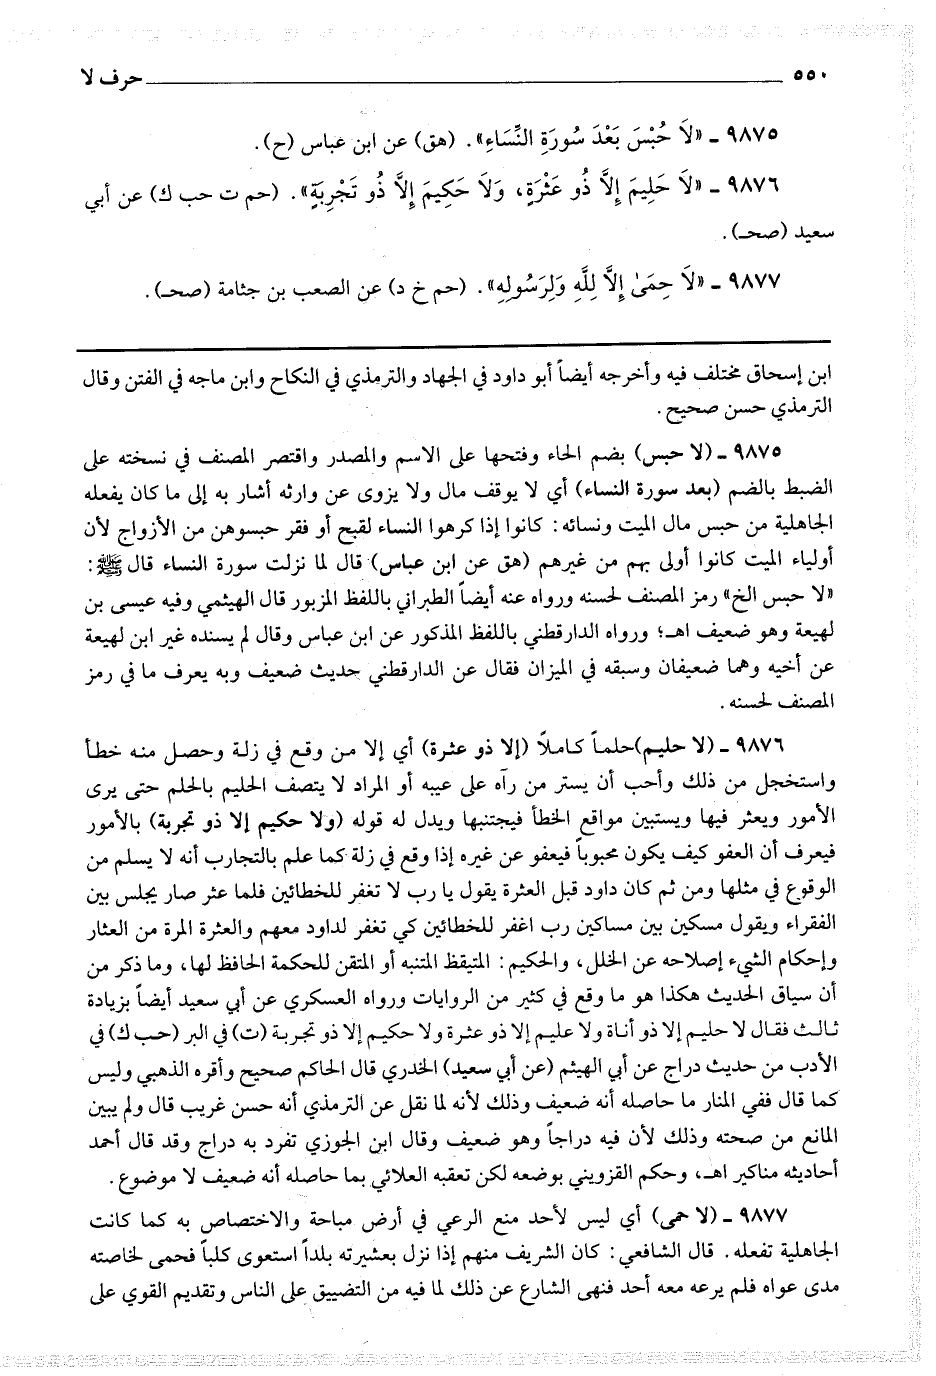 ٥٥٠ حرف لا
٩٨٧٥ ـ «لَا حُبْسَ بَعْدَ سُورَةِ النِّسَاءِ». (هق) عن ابن عباس (ح).
٩٨٧٦ ـ «لَا حَلِيمَ إِلَّا ذُو عَثْرَةٍ، وَلَا حَكِيمَ إِلَّا ذُو تَجْرِبَةٍ». (حم ت حب ك) عن أبي
سعيد (صحـ).
٩٨٧٧ ـ «لَا حِمَىٰ إِلَّا لِلَّهِ وَلِرَسُولِهِ». (حم خ د) عن الصعب بن جثامة (صحـ).
ابن إسحاق مختلف فيه وأخرجه أيضاً أبو داود في الجهاد والترمذي في النكاح وابن ماجه في الفتن وقال
الترمذي حسن صحيح.
٩٨٧٥ ـ (لا حبس) بضم الحاء وفتحها على الاسم والمصدر واقتصر المصنف في نسخته على
الضبط بالضم (بعد سورة النساء) أي لا يوقف مال ولا يزوى عن وارثه أشار به إلى ما كان يفعله
الجاهلية من حبس مال الميت ونسائه: كانوا إذا كرهوا النساء لقبح أو فقر حبسوهن من الأزواج لأن
أولياء الميت كانوا أولى بهم من غيرهم (هق عن ابن عباس) قال لما نزلت سورة النساء قال ﷺ:
«لا حبس الخ» رمز المصنف لحسنه ورواه عنه أيضاً الطبراني باللفظ المزبور قال الهيثمي وفيه عيسى بن
لهيعة وهو ضعيف اهـ؛ ورواه الدارقطني باللفظ المذكور عن ابن عباس وقال لم يسنده غير ابن لهيعة
عن أخيه وهما ضعيفان وسبقه في الميزان فقال عن الدارقطني حديث ضعيف وبه يعرف ما في رمز
المصنف لحسنه.
٩٨٧٦ ـ (لا حليم)حلماً كاملاً (إلا ذو عثرة) أي إلا من وقع في زلة وحصل منه خطأ
واستخجل من ذلك وأحب أن يستر من رآه على عيبه أو المراد لا يتصف الحليم بالحلم حتى يرى
الأمور ويعثر فيها ويستبين مواقع الخطأ فيجتنبها ويدل له قوله (ولا حكيم إلا ذو تجربة) بالأمور
فيعرف أن العفو كيف يكون محبوباً فيعفو عن غيره إذا وقع في زلة كما علم بالتجارب أنه لا يسلم من
الوقوع في مثلها ومن ثم كان داود قبل العثرة يقول يا رب لا تغفر للخطائين فلما عثر صار يجلس بين
الفقراء ويقول مسكين بين مساكين رب اغفر للخطائين كي تغفر لداود معهم والعثرة المرة من العثار
وإحكام الشيء إصلاحه عن الخلل، والحكيم: المتيقظ المتنبه أو المتقن للحكمة الحافظ لها، وما ذكر من
أن سياق الحديث هكذا هو ما وقع في كثير من الروايات ورواه العسكري عن أبي سعيد أيضاً بزيادة
ثالث فقال لا حليم إلا ذو أناة ولا عليم إلا ذو عثرة ولا حكيم إلا ذو تجربة (ت) في البر (حب ك) في
الأدب من حديث دراج عن أبي الهيثم (عن أبي سعيد) الخدري قال الحاكم صحيح وأقره الذهبي وليس
كما قال ففي المنار ما حاصله أنه ضعيف وذلك لأنه لما نقل عن الترمذي أنه حسن غريب قال ولم يبين
المانع من صحته وذلك لأن فيه دراجاً وهو ضعيف وقال ابن الجوزي تفرد به دراج وقد قال أحمد
أحاديثه مناكير اهـ، وحكم القزويني بوضعه لكن تعقبه العلائي بما حاصله أنه ضعيف لا موضوع.
٩٨٧٧ ـ (لا حمى) أي ليس لأحد منع الرعي في أرض مباحة والاختصاص به كما كانت
الجاهلية تفعله. قال الشافعي: كان الشريف منهم إذا نزل بعشيرته بلداً استعوى كلباً فحمى لخاصته
مدى عواه فلم يرعه معه أحد فنهى الشارع عن ذلك لما فيه من التضييق على الناس وتقديم القوي على